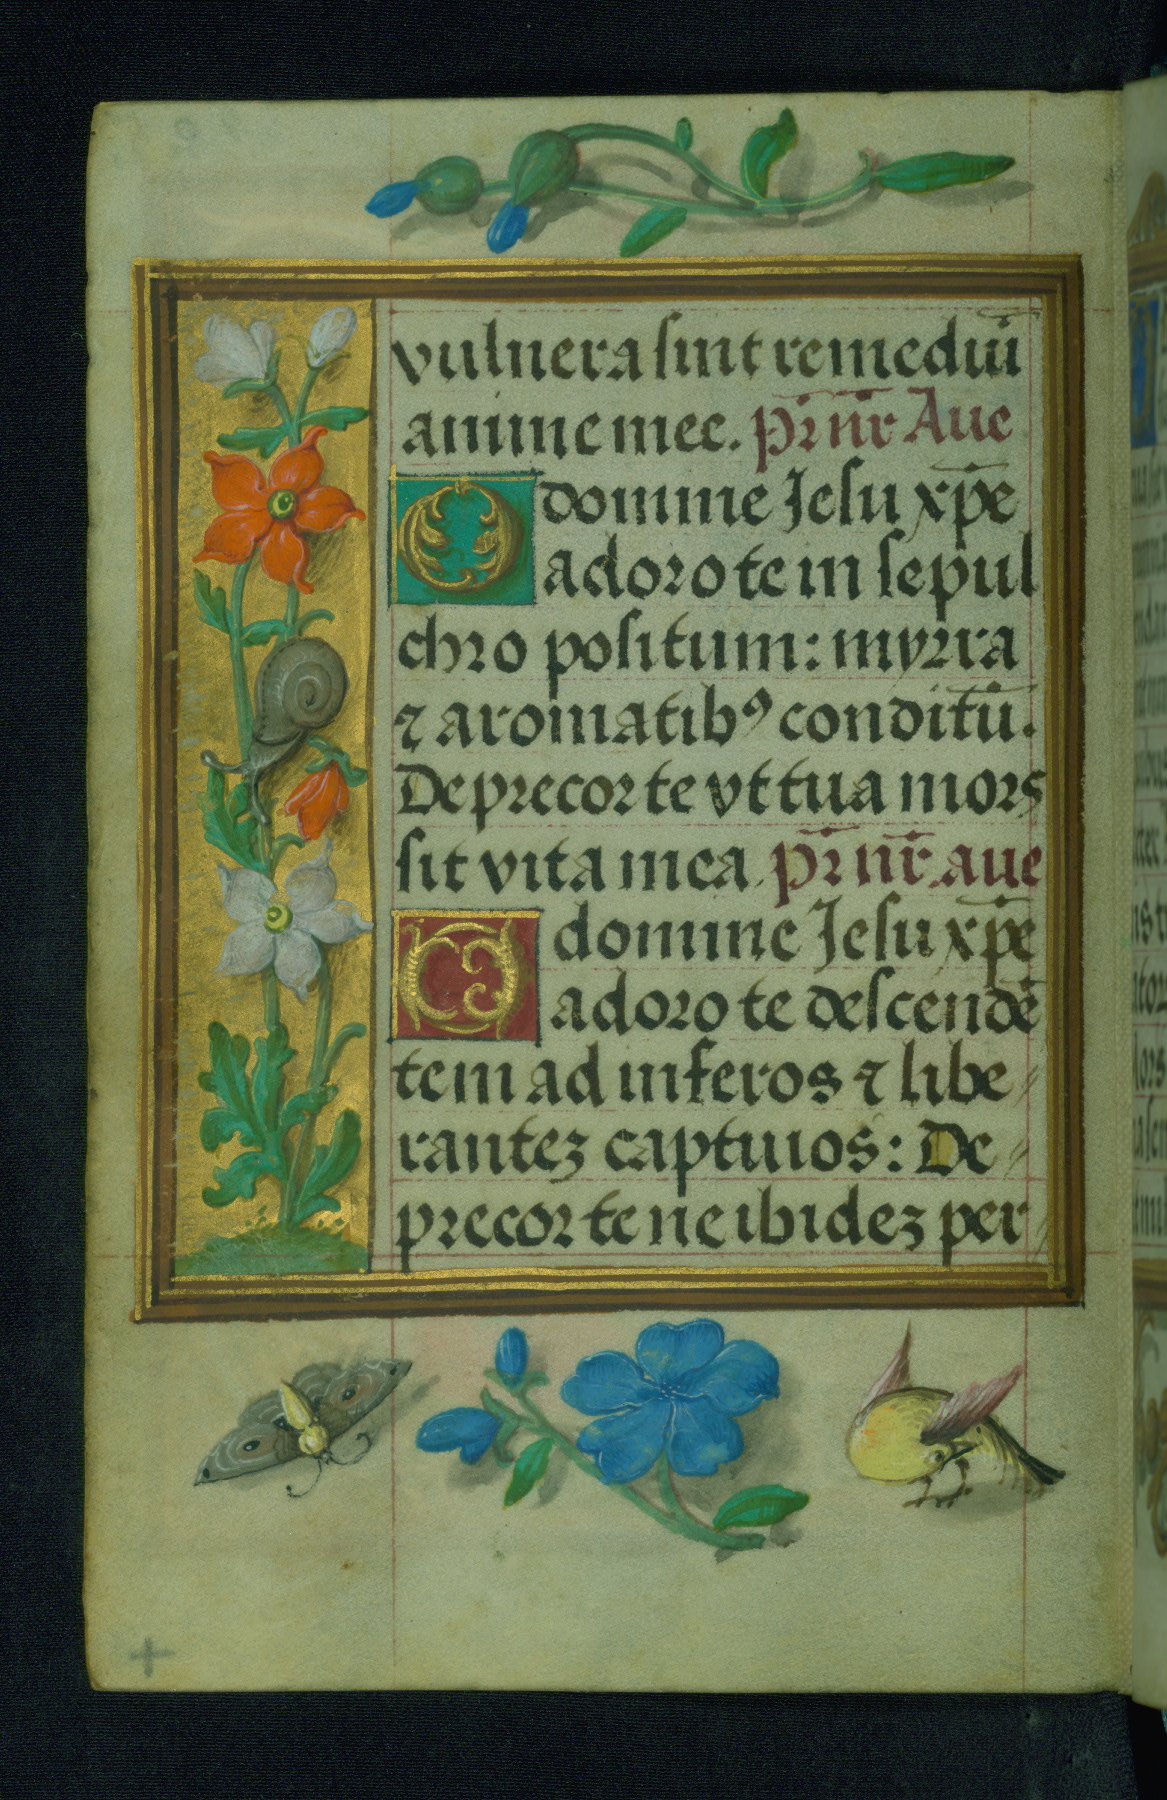 vulnera sint remediū
anime mee. pr̄ nr̄ Aue
O domine Jesu xp̄e
adoro te in sepul
chro positum: myrra
⁊ aromatibꝰ conditū.
Deprecor te vt tua mors
sit vita mea. pr̄ nr̄. aue
O domine Jesu xp̄e
adoro te descendē
tem ad inferos ⁊ libe
rantez captiuos: De
precor te ne ibidez per